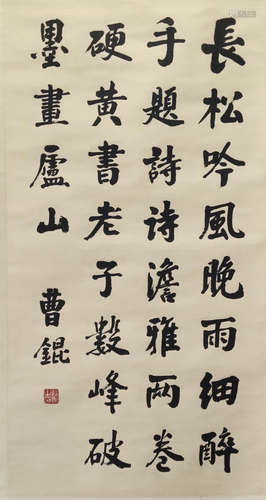 長松吟風晚雨細醉
手題詩詩澹雅两卷
硬黃書老子數峰破
墨畫廬山
曹錕